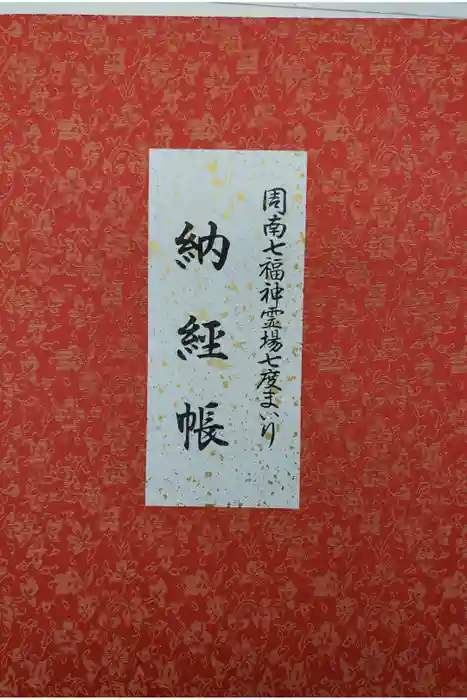 周南七福神霊場七度まいり
納経帳